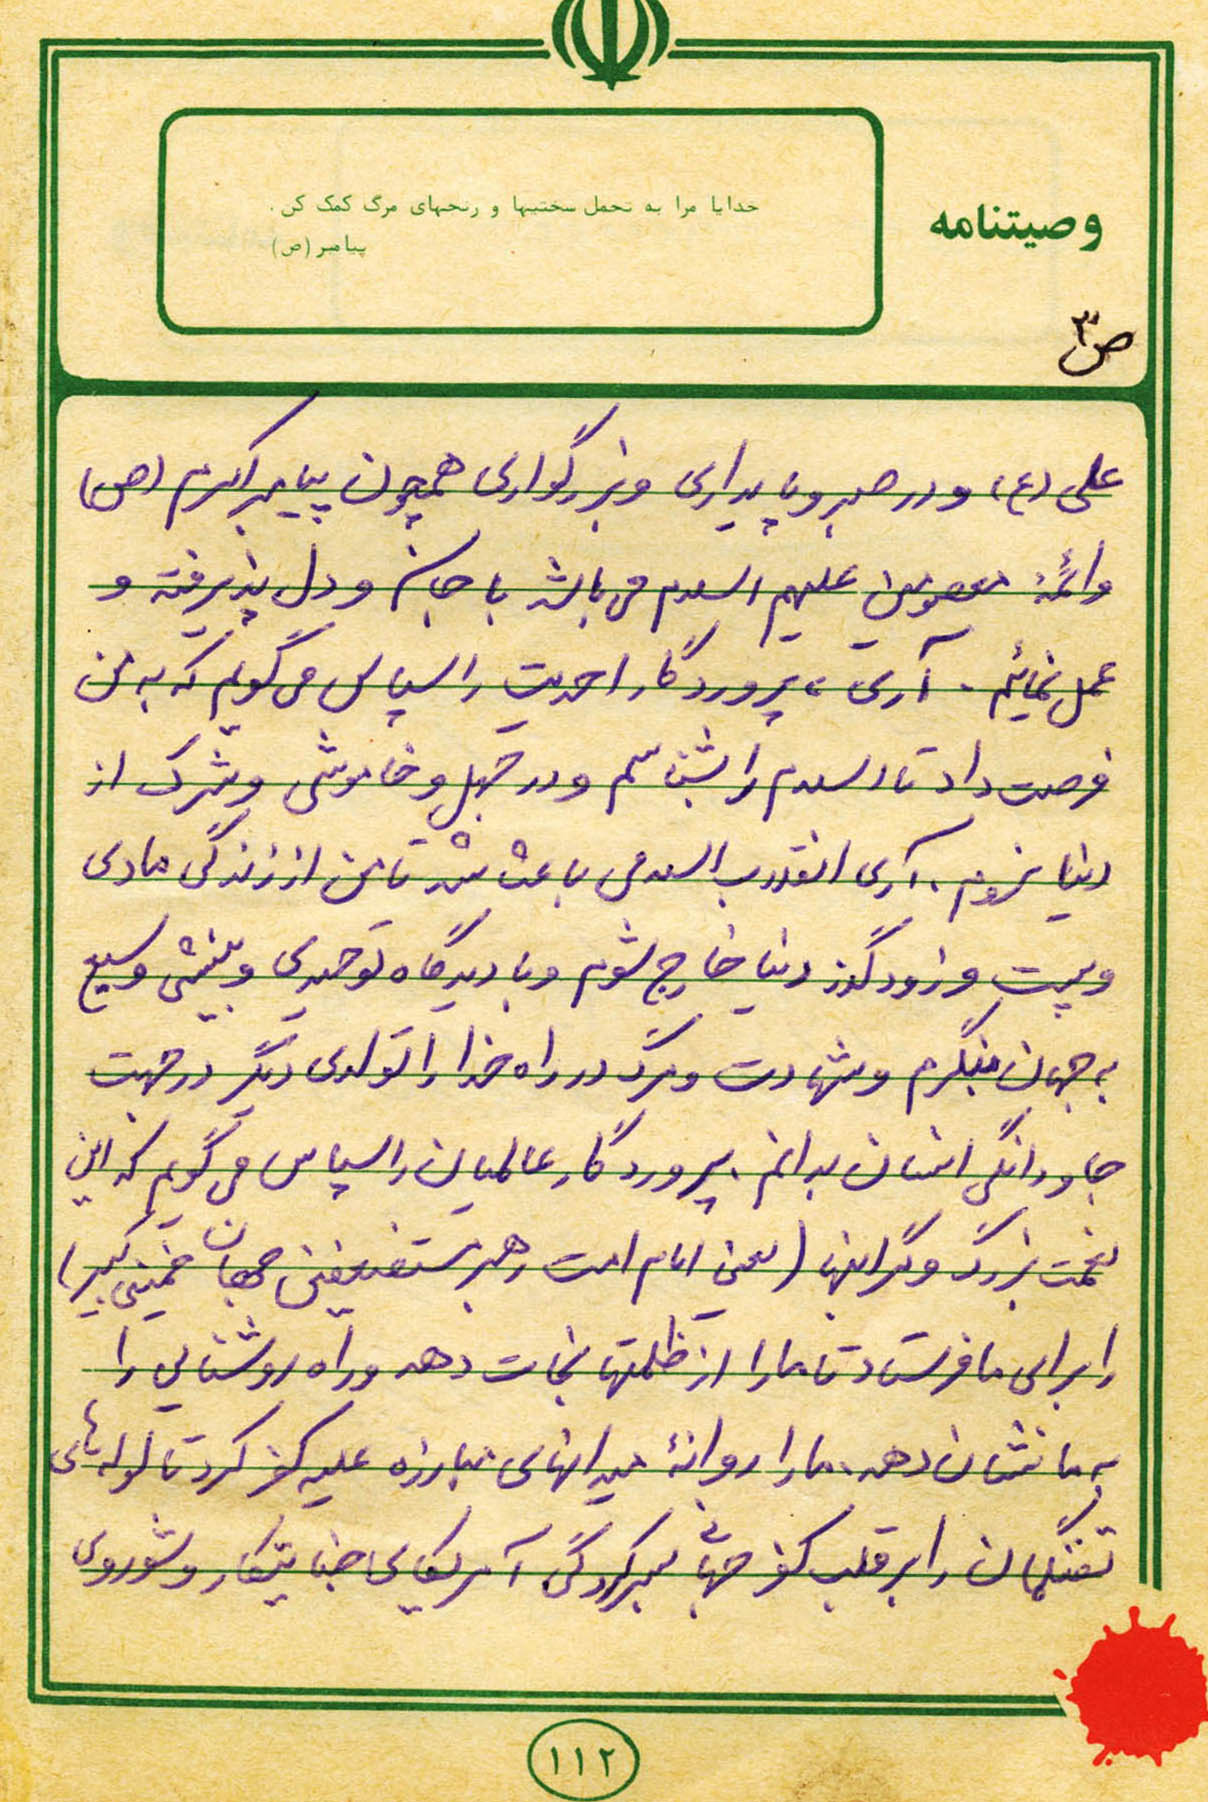 خدایا مرا به تحمل سختیها و رنجهای مرگ کمک کن.
پیامبر (ص)
وصیتنامه
ص ۳
علی (ع) و در صبر و پایداری و بزرگواری همچون پیامبر اکرم (ص)
و ائمهٔ معصومین علیهم السلام می باشد با جان و دل پذیرفته و
عمل نمائیم. آری، پروردگار احدیت را سپاس می گویم که به من
فرصت داد تا اسلام را بشناسم و در جهل و خاموشی و شرک از
دنیا نروم. آری انقلاب اسلامی باعث شد تا من از زندگی مادی
و پست و زودگذر دنیا خارج شوم و با دیدگاه توحیدی و بینشی وسیع
به جهان بنگرم و شهادت و مرگ در راه خدا را تولدی دیگر در جهت
جاودانگی انسان بدانم. پروردگار عالمیان را سپاس می گویم که این
نعمت بزرگ و گرانبها (یعنی امام امت رهبر مستضعفین جهان خمینی کبیر)
را برای ما فرستاد تا ما را از ظلمتها نجات دهد و راه روشنایی را
به ما نشان دهد. ما را روانهٔ میدانهای مبارزه علیه کفر کرد تا لوله های
تفنگمان را بر قلب کفر جهانی به سرکردگی آمریکای جنایتکار و شوروی
۱۱۲